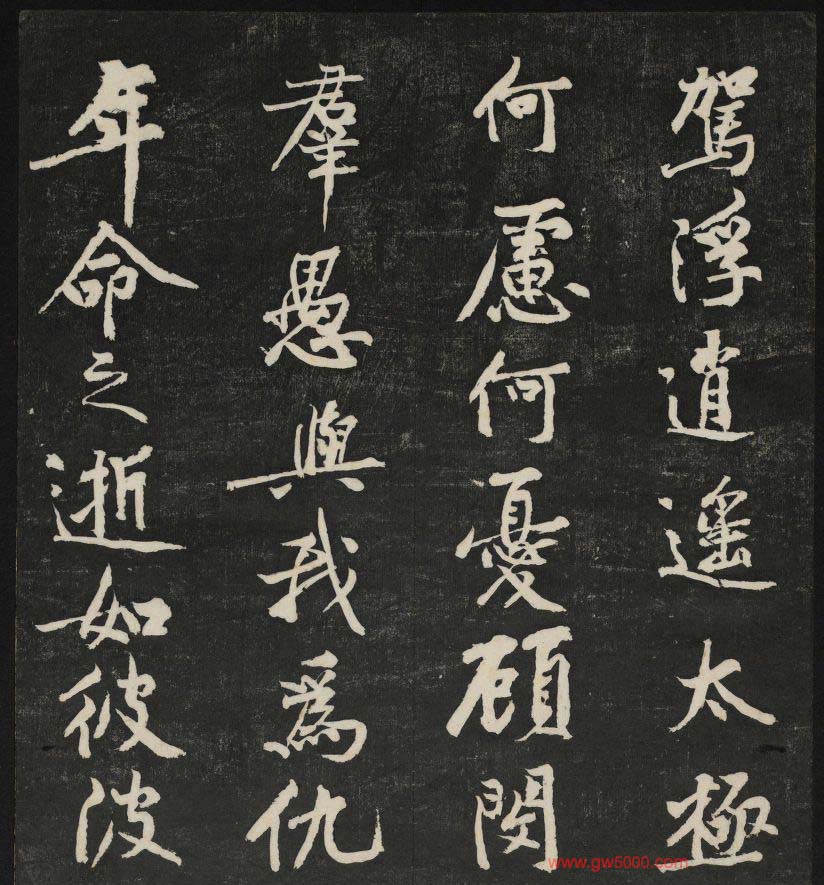 駕浮逍遥太極
何慮何憂顧閔
羣愚與我爲仇
年命之逝如彼波
www.gw5000.com